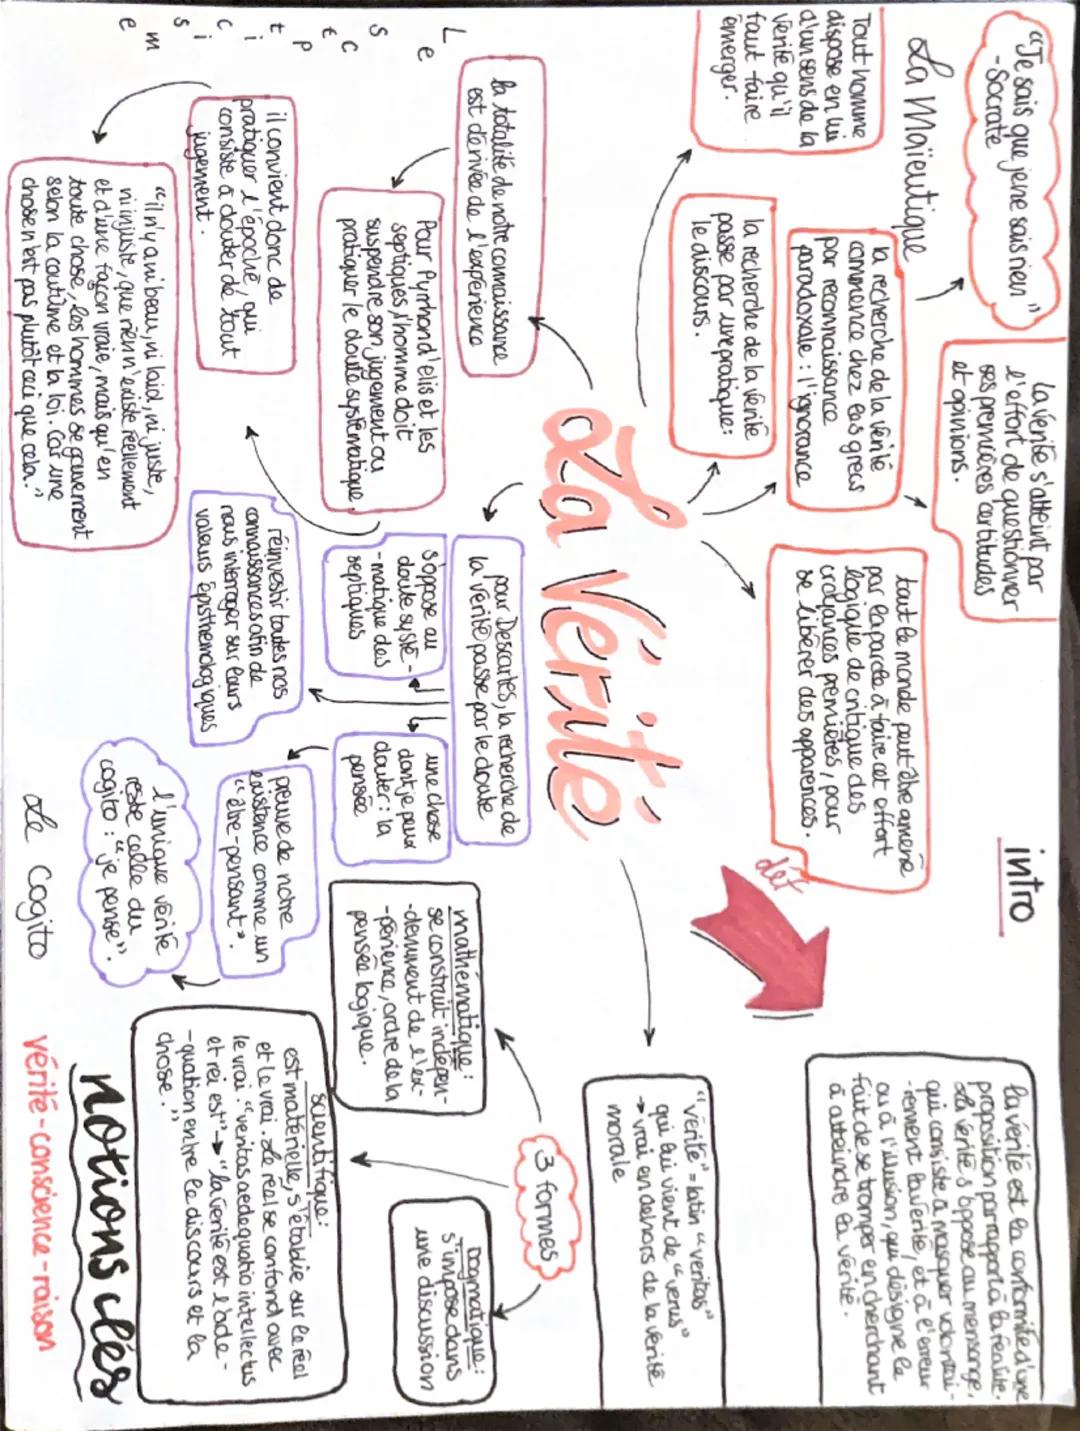 "Je sais que je ne sais rien"
- Socrate
La Maïeutique
Tout homme
dispose en lui
d'un sens de la
vérité qu'il
faut faire
émerger.
la recherche de la vérité
commence chez les grecs
par reconnaissance
paradoxale : l'ignorance
la recherche de la vérité
passe par une pratique:
le discours.
La vérité s'atteint par
l'effort de questionner
ses premières certitudes
et opinions.
tout le monde peut être amené
par la parole à faire cet effort
logique de critique des
croyances premières, pour
se libérer des apparences.
intro
déf
La vérité est la conformité d'une
proposition par rapport à la réalité.
La vérité s'oppose au mensonge,
qui consiste à masquer volontai-
-rement la vérité, et à l'erreur
ou à l'illusion, qui désigne le
fait de se tromper en cherchant
à atteindre la vérité.
La Vérité
"vérité" = latin "veritas"
qui lui vient de "verus"
→ vrai en dehors de la vérité
morale
3 formes
mathématique :
se construit indépen-
-demment de l'ex-
-périence, ordre de la
pensée logique.
Dogmatique :
s'impose dans
une discussion
scientifique :
est matérielle, s'établie sur le réel
et le vrai. Le réel se confond avec
le vrai. "veritas aedequatio intellectus
et rei est" → "la vérité est l'adé-
-quation entre le discours et la
chose."
Le Scepticisme
la totalité de notre connaissance
est dérivée de l'expérience
Pour Pyrrhon d'elis et les
septiques, l'homme doit
suspendre son jugement ou
pratiquer le doute systématique.
il convient donc de
pratiquer l'époché, qui
consiste à douter de tout
jugement.
"il n'y a ni beau, ni laid, ni juste,
ni injuste, que rien n'existe réellement
et d'une façon vraie, mais qu'en
toute chose, les hommes se gouvernent
selon la coutume et la loi. Car une
chose n'est pas plutôt ceci que cela."
pour Descartes, la recherche de
la vérité passe par le doute
s'oppose au
doute systé-
-matique des
septiques
une chose
dont je peux
douter : la
pensée
réinvestir toutes nos
connaissances afin de
nous interroger sur leurs
valeurs épisthémologiques
preuve de notre
existence comme un
"être-pensant".
l'unique vérité
reste celle du
cogito : "je pense".
Le Cogito
notions clés
vérité - conscience - raison